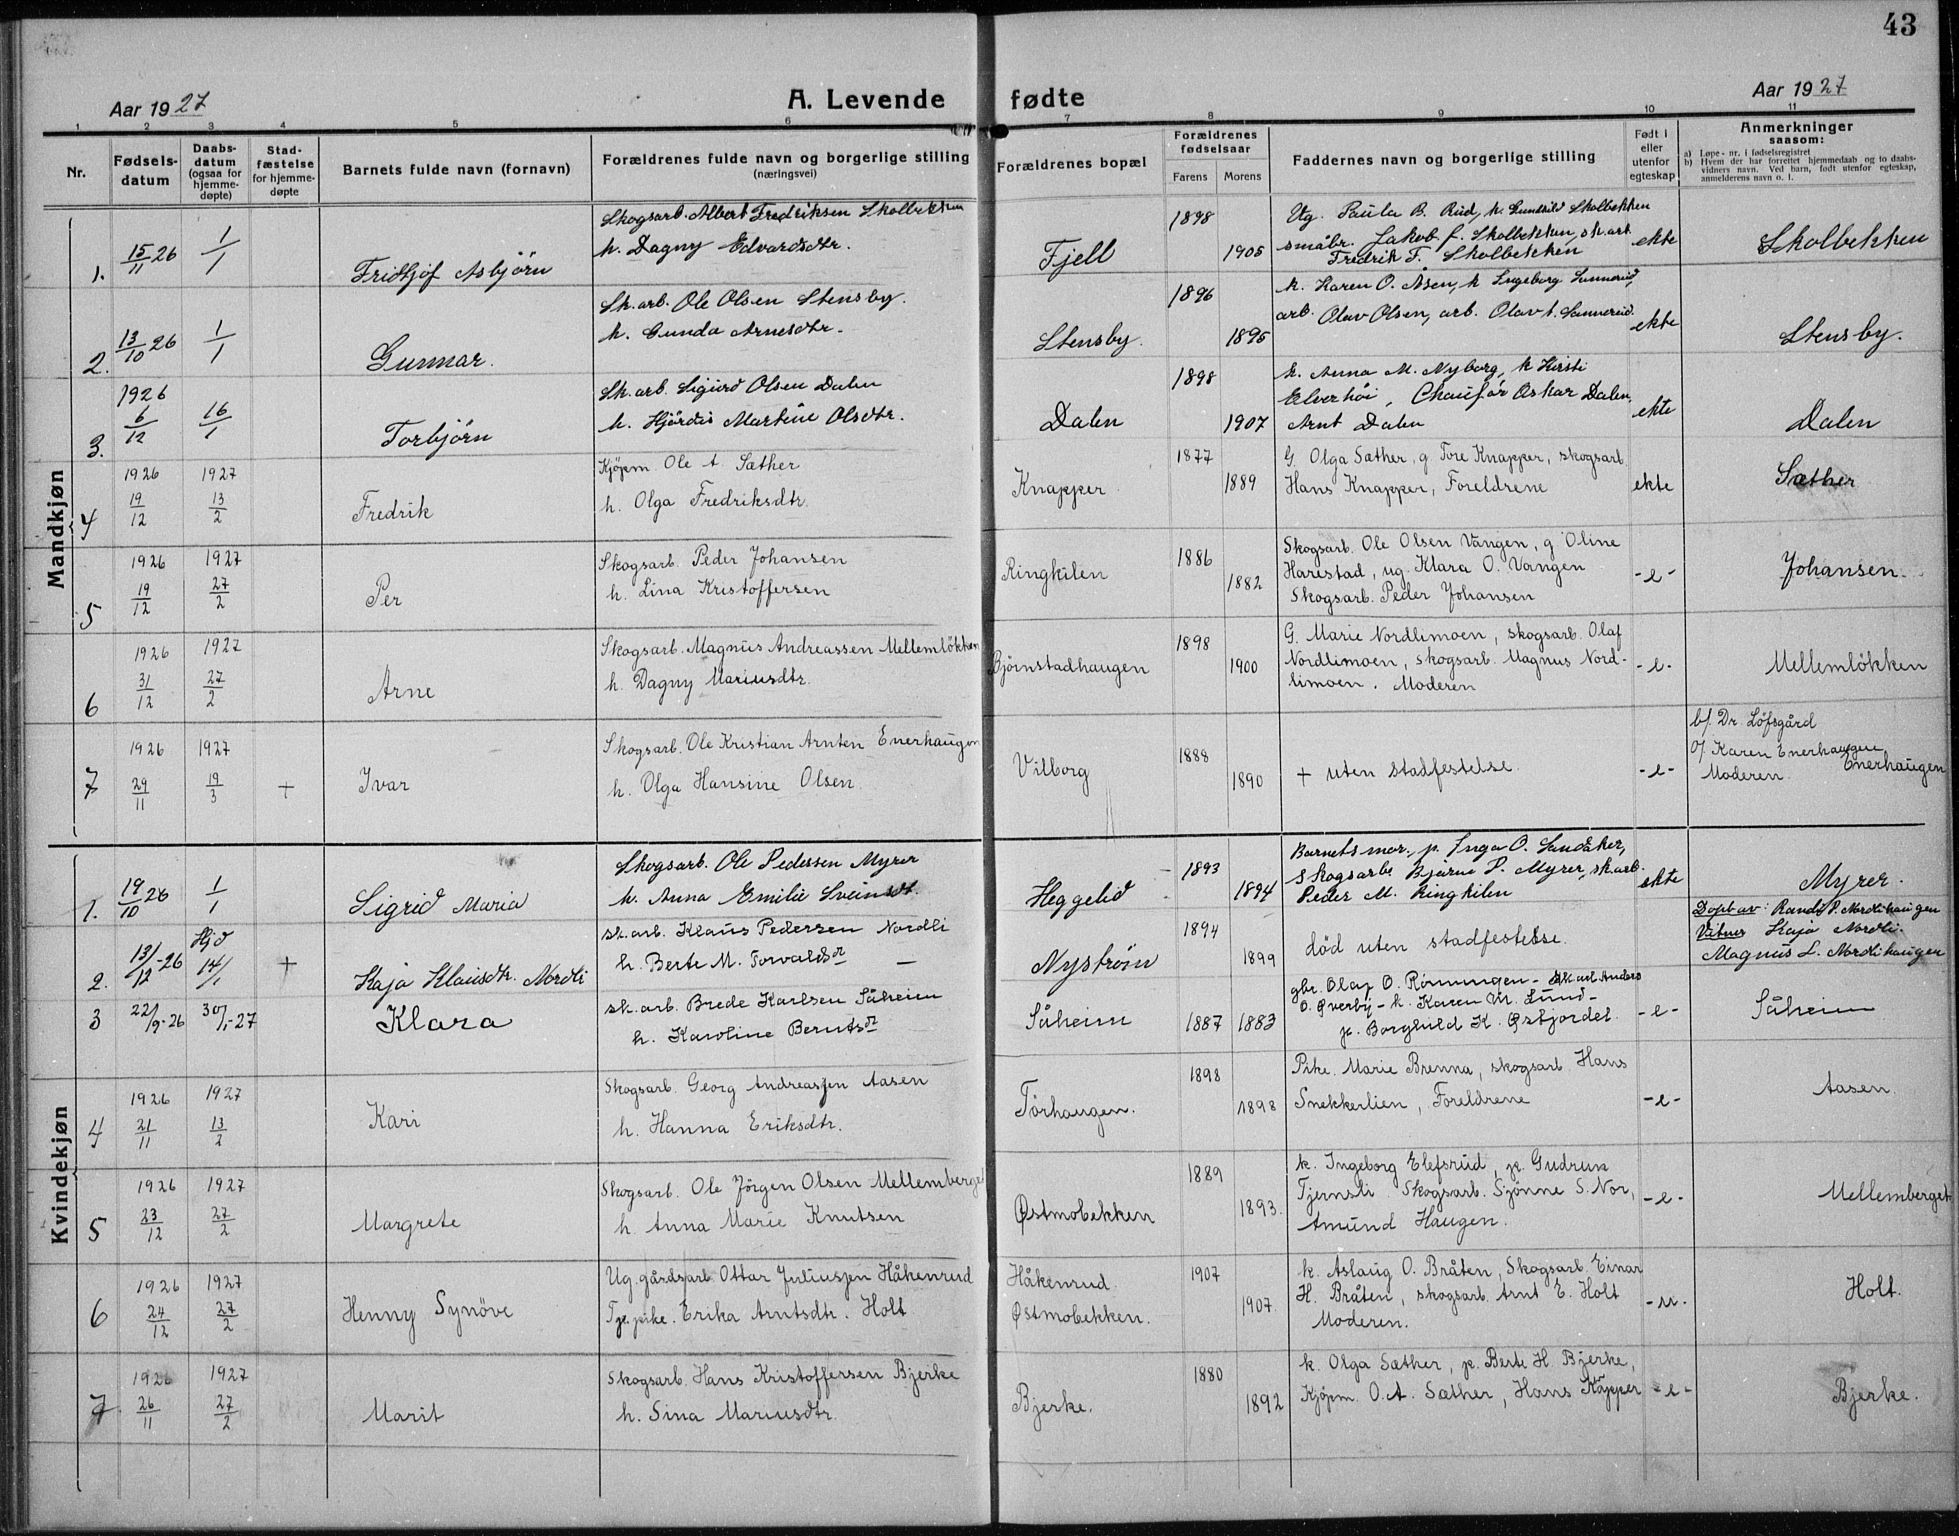 43
Aar 1927
A. Levende fødte
Aar 1927
1 2 3 4 5 6 7 8 9 10 11
Nr.
Fødsels-
datum
Daabs-
datum
(ogsaa for
hjemme-
døpte)
Stad-
fæstelse
for hjemme-
døpte
Barnets fulde navn (fornavn)
Forældrenes fulde navn og borgerlige stilling
(næringsvei)
Forældrenes bopæl
Forældrenes
fødselsaar
Farens
Morens
Faddernes navn og borgerlige stilling
Født i
eller
utenfor
egteskap
Anmerkninger
saasom:
a) Løpe-nr. i fødselsregistret
b) Hvem der har forrettet hjemmedaab og to daabs-
vidners navn. Ved barn, født utenfor egteskap,
anmelderens navn o. l.
Mandkjøn
1. 15/11 26 1/1 Fridtjof Asbjörn
Skogsarb. Albert Fredriksen Skolbekken
h. Dagny Edvardsdtr.
Fjell 1898 1905
Ug. Paula B. Rud, k. Gunhild Skolbekken
småbr. Jakob f. Skolbekken, sk.arb.
Fredrik F. Skolbekken
ekte Skolbekken
2. 13/10 26 1/1 Gunnar.
Sk.arb. Ole Olsen Stensby.
h. Gunda Arnesdtr.
Stensby. 1896 1895
k. Karen O. Åsen, k Ingeborg Sunnerud,
arb. Olav Olsen, arb. Olav t. Sunnerud.
ekte Stensby.
3. 1926 6/12 16/1 Torbjörn
Sk.arb. Sigurd Olsen Dalen
h. Hjördis Martine Olsdtr.
Dalen 1898 1907
k. Anna M. Nyborg, k Kirsti
Elverhöi, Chauför Oskar Dalen,
Arnt Dalen
ekte Dalen
4 1926 19/12 1927 13/2 Fredrik
Kjöpm Ole A Sæther
h. Olga Fredriksdtr.
Knapper 1877 1889
G. Olga Sæther, g Tore Knapper, skogsarb.
Hans Knapper, Foreldrene
ekte Sæther
5 1926 19/12 1927 27/2 Per
Skogsarb. Peder Johansen
h. Lina Kristoffersen
Ringkilen 1886 1882
Skogsarb. Ole Olsen Vangen, g Oline
Harestad, ug. Klara O. Vangen
Skogsarb. Peder Johansen
-e- Johansen.
6 1926 31/12 1927 27/2 Arne
Skogsarb. Magnus Andreassen Mellemlökken
h. Dagny Mariusdtr.
Björnstadhaugen 1898 1900
G. Marie Nordlimoen, skogsarb. Olaf
Nordlimoen, skogsarb. Magnus Nord-
limoen. Moderen
-e- Mellemlökken
7 1926 29/11 1927 19/3 + Ivar
Skogsarb. Ole Kristian Arntzen Enerhaugen
h. Olga Hansine Olsen.
Vilborg 1888 1890
+ uten stadfestelse.
-e-
b/. Dr. Löfsgård
o/ Karen Enerhaugen
Moderen. Enerhaugen
Kvindekjøn
1. 19/10 26 1/1 Sigrid Maria
Skogsarb. Ole Pedersen Myrer
h. Anna Emilie Sveinsdt.
Heggelid 1893 1894
Barnets mor, p. Inga O. Sandåker,
Skogsarb. Bjarne P. Myrer, sk.arb.
Peder M. Ringkilen
ekte Myrer.
2. 13/12-26 Hjd 14/1 + Kaja Klausdtr. Nordli
sk.arb. Klaus Pedersen Nordli
h. Berte M. Torvaldsdt
Nyström 1894 1899
död uten stadfestelse.
Döpt av: Randi P. Nordlihaugen
Vitner Kaja Nordli.
Magnus L. Nordlihaugen
3 22/9-26 30/1-27 Klara
sk.arb. Brede Karlsen Såheim
h. Karoline Berntsdt
Såheim 1887 1883
gbr. Olaf O. Rönningen - sk.arb Anders
O. Øverby - k. Karen M. Lund -
p. Borghild K. Østfjordet.
-e- Såheim
4 1926 21/11 1927 13/2 Kari
Skogsarb. Georg Andreassen Aasen
h. Hanna Eriksdtr.
Törhaugen. 1898 1898
Pike. Marie Brenna, skogsarb. Hans
Snekkerlien, Foreldrene
-e- Aasen.
5 1926 23/12 1927 27/2 Margrete
Skogsarb. Ole Jörgen Olsen Mellemberget
h. Anna Marie Knutsen
Østmobekken 1889 1893.
k. Ingeborg Elefsrud, p. Gudrun
Tjernsli. Skogsarb. Sjönne S. Nor,
Amund Haugen.
-e- Mellemberget
6 1926 24/12 1927 27/2 Henny Synöve
Ug. gårdsarb. Ottar Juliussen Håkenrud
Tje.pike. Erika Arntsdtr. Holt
Håkenrud.
Østmobekken. 1907 1907.
k. Aslaug O. Bråten, Skogsarb. Einar
H. Bråten, skogsarb. Arnt E. Holt
Moderen.
-u- Holt.
7 1926 26/11 1927 27/2 Marit
Skogsarb. Hans Kristoffersen Bjerke
h. Sina Mariusdtr.
Bjerke. 1880 1892
k. Olga Sæther, p. Berte H. Bjerke,
Kjöpm. O. A. Sæther, Hans Knapper
-e- Bjerke.